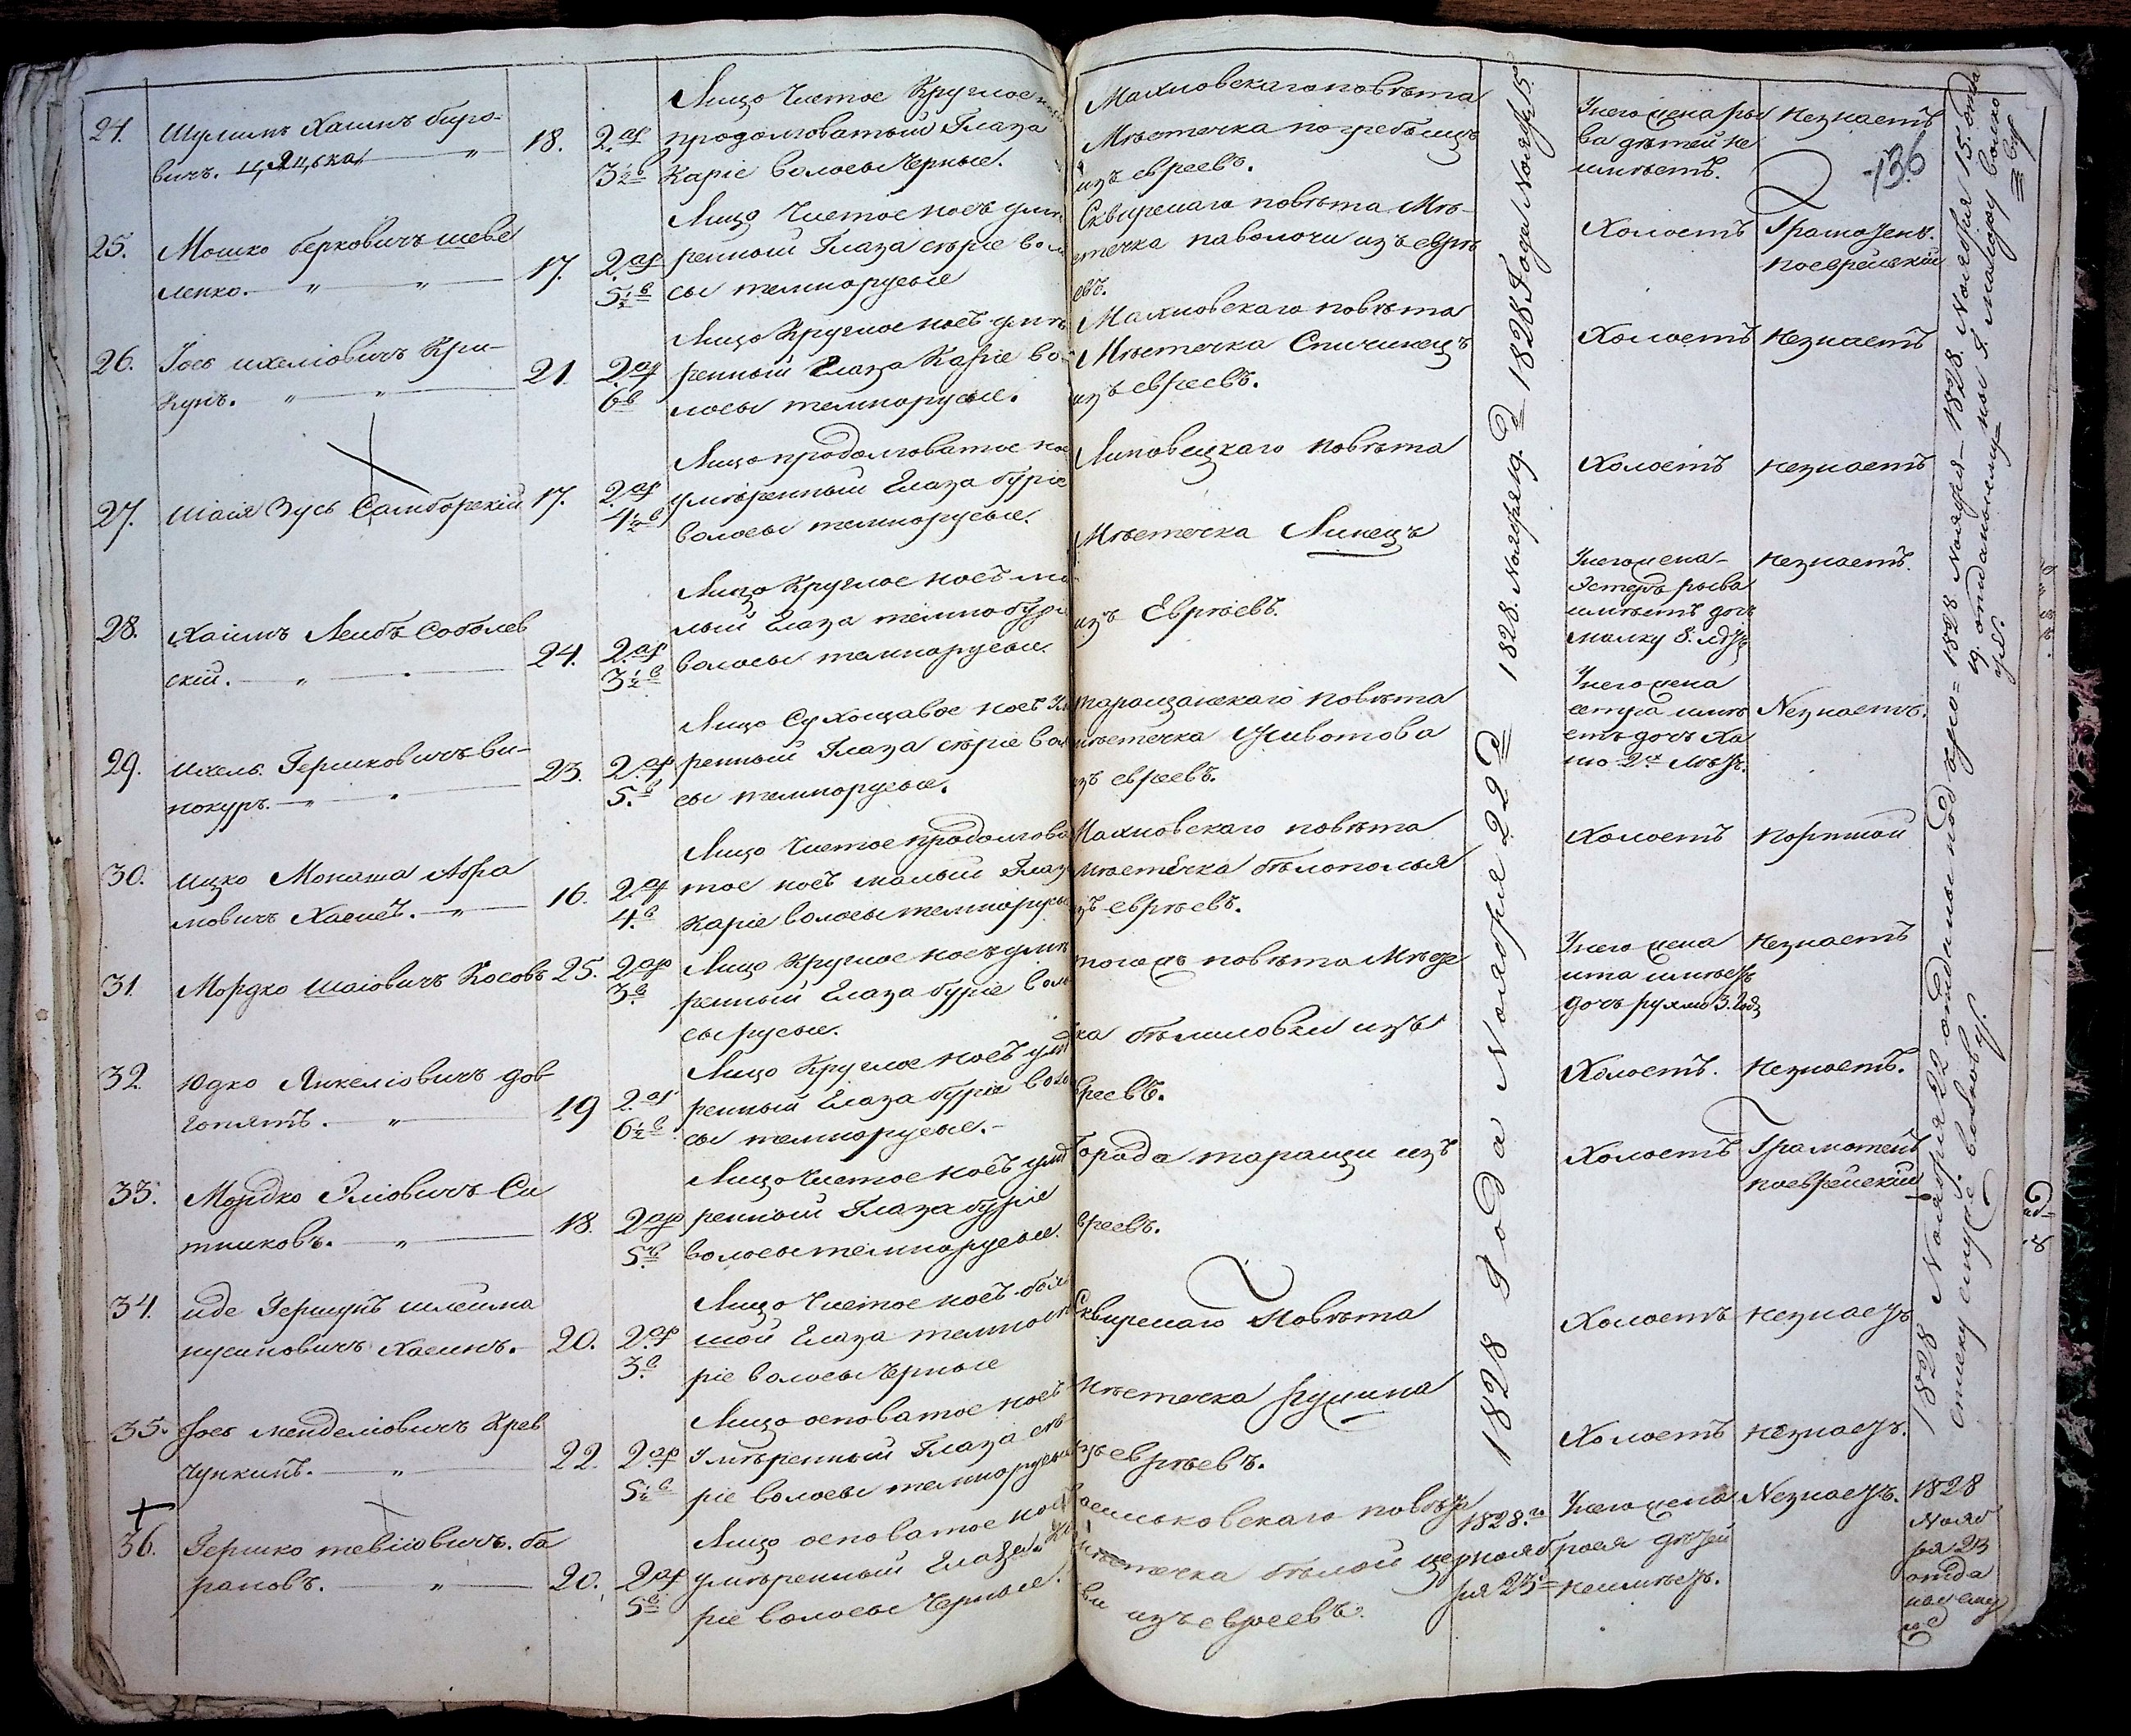 24.
Шулимъ Хаимъ биро-
вичъ. Цяцька
18.
2 ар
3 ½ в
Лицо Чистое Круглое
продолговатый Глаза
Каріе волосы Черные.
Махновскаго повѣта
Мѣстечка погребыщь
изъ евреевъ.
ва дѣтей не
имѣетъ.
Незнаетъ
136
25.
Мошко берковичъ шеве
ленко.
17.
2 ар
5 ½ в
Лицо Чистое носъ умѣ
ренный Глаза сѣрые воло
сы темнорусые
Сквирскаго повѣта Мѣ-
стечка паволочи изъ еврѣ
евъ.
Холостъ
Грамотенъ
поеврейски
26.
Іось ихеліовичъ Кри-
кунъ.
21
2 ар
6 в
Лицо Круглое носъ умѣ
ренный Глаза Каріе во-
лосы темнорусые.
Махновскаго повѣта
Мѣстечка Спичинецъ
изъ евреевъ.
Холостъ
Незнаетъ
27.
Шаія Зусь Самборскій
17.
2 ар
4 ½ в
Лицо продолговатое нос
умѣренный Глаза буріе
волосы темнорусые.
Липовецкаго повѣта
Мѣстечка Линецъ
изъ Еврѣевъ.
Холостъ
незнаетъ
28.
Хаимъ Леибъ Соболев
скій.
24.
2 ар
3 ½ в
Лицо Круглое носъ ма
лый Глаза темнобуріе
волосы темнорусые.
Унего жена
Эстеръ рыва
имѣетъ дочь
малку 8.
незнаетъ.
29.
Ихель Гершковичъ ви-
нокуръ.
23.
2 ар
5 в
Лицо Сухощавое носъ ум
ренный Глаза сѣріе воло
сы темнорусые.
таращанскаго повѣта
мѣстечка Животова
изъ евреевъ.
Унего жена
сетра имѣ
етъ дочь Ха
Незнаетъ.
30.
Ицко Монаша Абра
мовичъ Хаетъ.
16.
2 ар
4 в
Лицо Чистое продолгова
тое носъ малый Глаза
Каріе волосы темнорусы
Махновскаго повѣта
мѣстечка бѣлополья
изъ еврѣевъ.
Холостъ
портной
31.
Мордко Шаіовичъ Косовъ
25.
2 ар
3 в
Лицо Круглое носъ умѣ
ренный Глаза буріе воло
сы русые.
тогожъ повѣта Мѣсте
ка бѣлиловки изъ
вреевъ.
Унего жена
ита имѣетъ
дочь рухлю 3. год
Незнаетъ
32.
Юдко Янкеліовичъ дов
гопятъ.
19
2 ар
6 ½ в
Лицо Круглое носъ умѣ
ренный Глаза буріе воло
сы темнорусые.
Холостъ.
Незнаетъ.
33.
Мордко Эліовичъ Си
тниковъ.
18.
2 ар
5 в
Лицо Чистое носъ умѣ
ренный Глаза буріе
волосы темнорусые.
Города таращи изъ
вреевъ.
Холостъ
Грамотенъ
поеврейски
34.
иде Гершунъ шлеима
нусиновичъ Хасинъ.
20.
2 ар
3 в
Лицо Чистое носъ боль
шой Глаза темносѣ
ріе волосы Черные
Сквирскаго Повѣта
Мѣстечка ружина
изъ еврѣевъ.
Холостъ
незнаетъ
35.
Іось менделіовичъ Крев
чункинъ.
22.
2 ар
5 ½ в
Лицо осповатое носъ
Умѣренный Глаза сѣ-
ріе волосы темнорусы
Холостъ
незнаетъ.
36.
Гершко тевіовичъ. ба
рановъ.
20.
2 ар
5 в
Лицо осповатое нос
умѣренный Глаза Ка
ріе волосы Черные.
васильковскаго повѣта
мѣстечка бѣлой цер
кви изъ евреевъ.
1828.го
ноябр
ря 23
Унего жена
роея дѣтей
неимѣетъ.
Незнаетъ.
1828
Нояб
ря 23
отда
ны ему
1828 Года Ноября 15
1828. Ноября 19.
1828 Года Ноября 22
1828 Ноября 22 отданы под